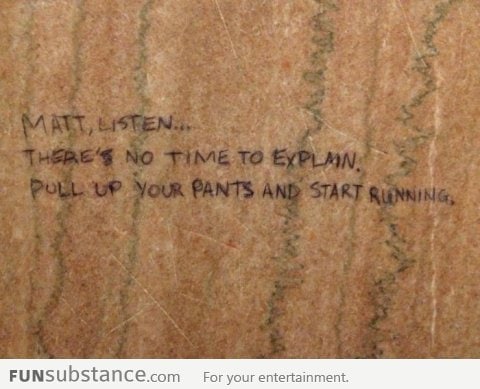 MATT, LISTEN...
THERE'S NO TIME TO EXPLAIN.
PULL UP YOUR PANTS AND START RUNNING.
FUNsubstance.com For your entertainment.